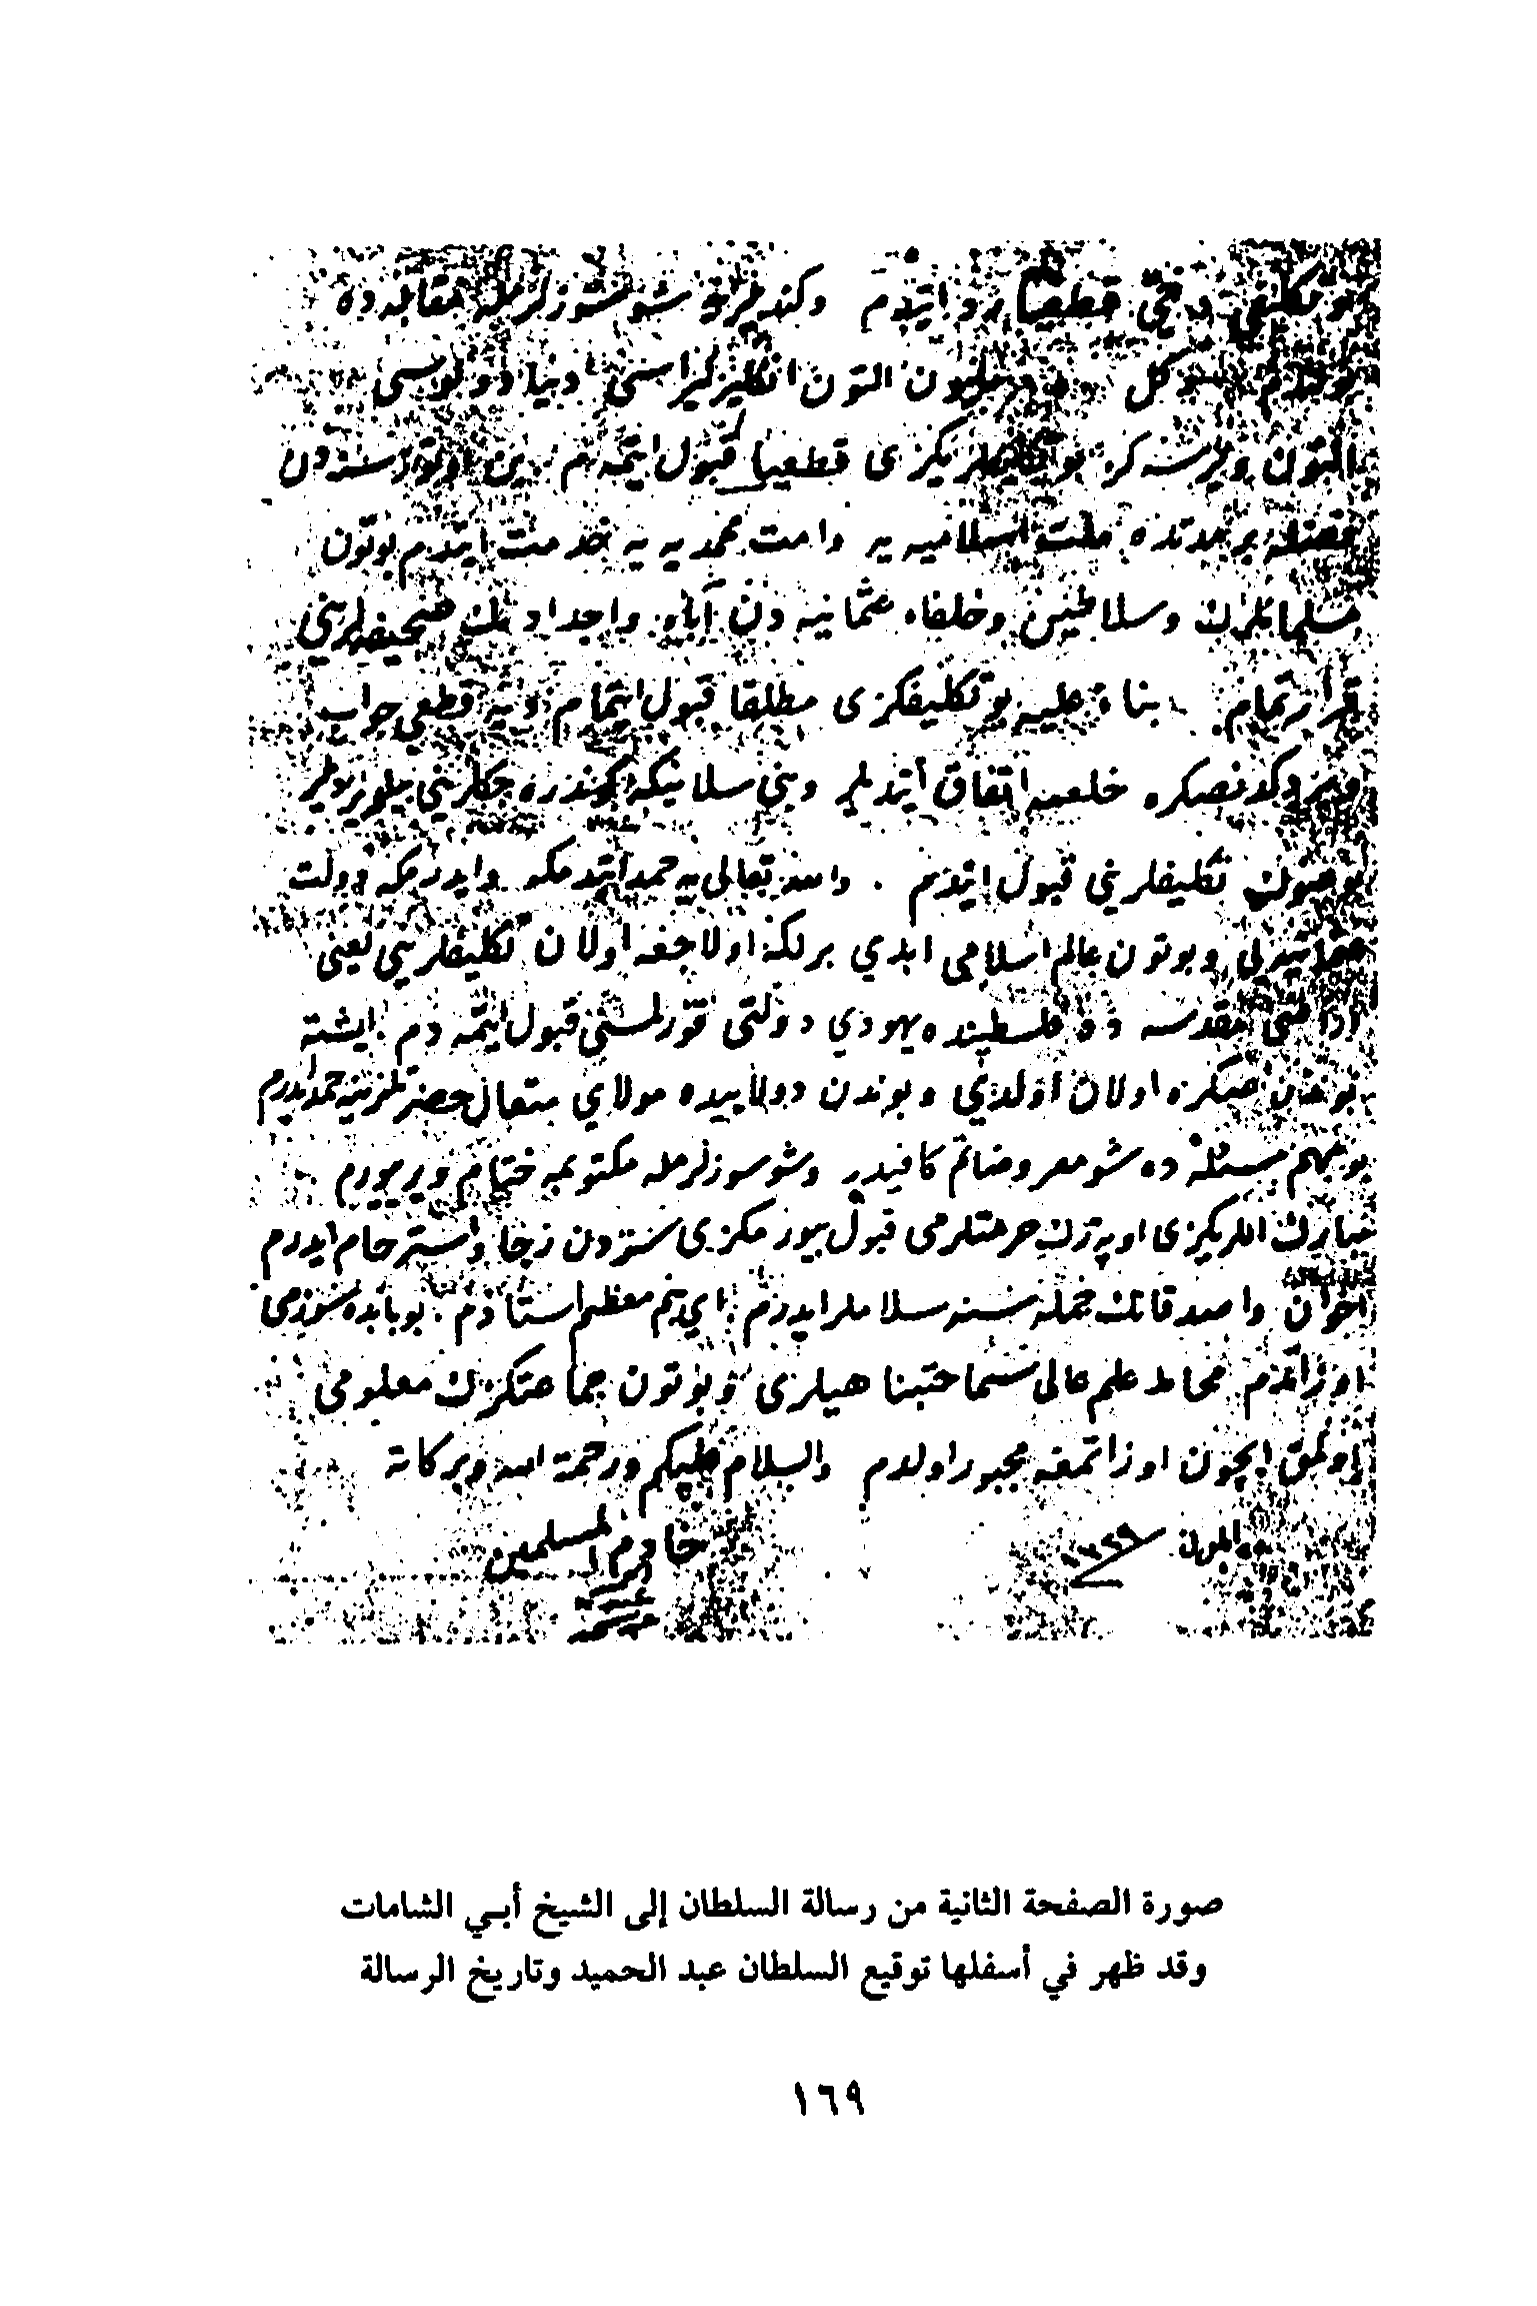 بو تكليفي دخي قطعيا رد ايتدم وكنديلرينه شو سوزلرمله مقابله ده
بولندم دكل مليون التون انكليز ليراسني دنيا دولوسي
التون ويرسه كز بو تكليفلريكزى قطعيا قبول ايتمه م بن اوتوز سنه دن
فضله بر مدتده ملت اسلاميه يه وامت محمديه يه خدمت ايتدم بوتون
مسلمانلرك وسلاطين وخلفاء عثمانيه دن آباء واجدادمك صحيفه لريني
قرارتمام بناء عليه بو تكليفكزى مطلقا قبول ايتمام ديه قطعي جواب
ويردكدنصكره خلعمه اتفاق ايتديلر وبني سلانيكه كوندره جكلريني بيلديرديلر
بو صوك تكليفلريني قبول ايتدم . والله تعالى يه حمد ايتدمكه وايدرمكه دولت
عثمانيه يى وبوتون عالم اسلامى ابدي بر لكه اولاجغه اولان تكليفلريني يعنى
اراضى مقدسه ده فلسطينده يهودي دولتى قورلمسني قبول ايتمه دم ايشته
بوندن صكره اولان اولدي وبوندن دولاييده مولاي متعال حضرتلرينه حمد ايدرم
بو مهم مسئله ده شو معروضاتم كافيدر وشو سوزلرمله مكتوبمه ختام ويريورم
مبارك اللريكزى اوپه رك حرمتلرمى قبول بيورمكزى سزدن رجا واسترحام ايدرم
اخوان واصدقانك جمله سنه سلاملر ايدرم اي بنم معظم استاذم بو بابده سوزمى
اوزاتدم محاط علم عالى سماحتپناهيلرى وبوتون جماعتكزك معلومى
اولمق ايچون اوزاتمغه مجبور اولدم والسلام عليكم ورحمة الله وبركاته
خادم المسلمين
١٣٢٩
صورة الصفحة الثانية من رسالة السلطان إلى الشيخ أبي الشامات
وقد ظهر في أسفلها توقيع السلطان عبد الحميد وتاريخ الرسالة
١٦٩